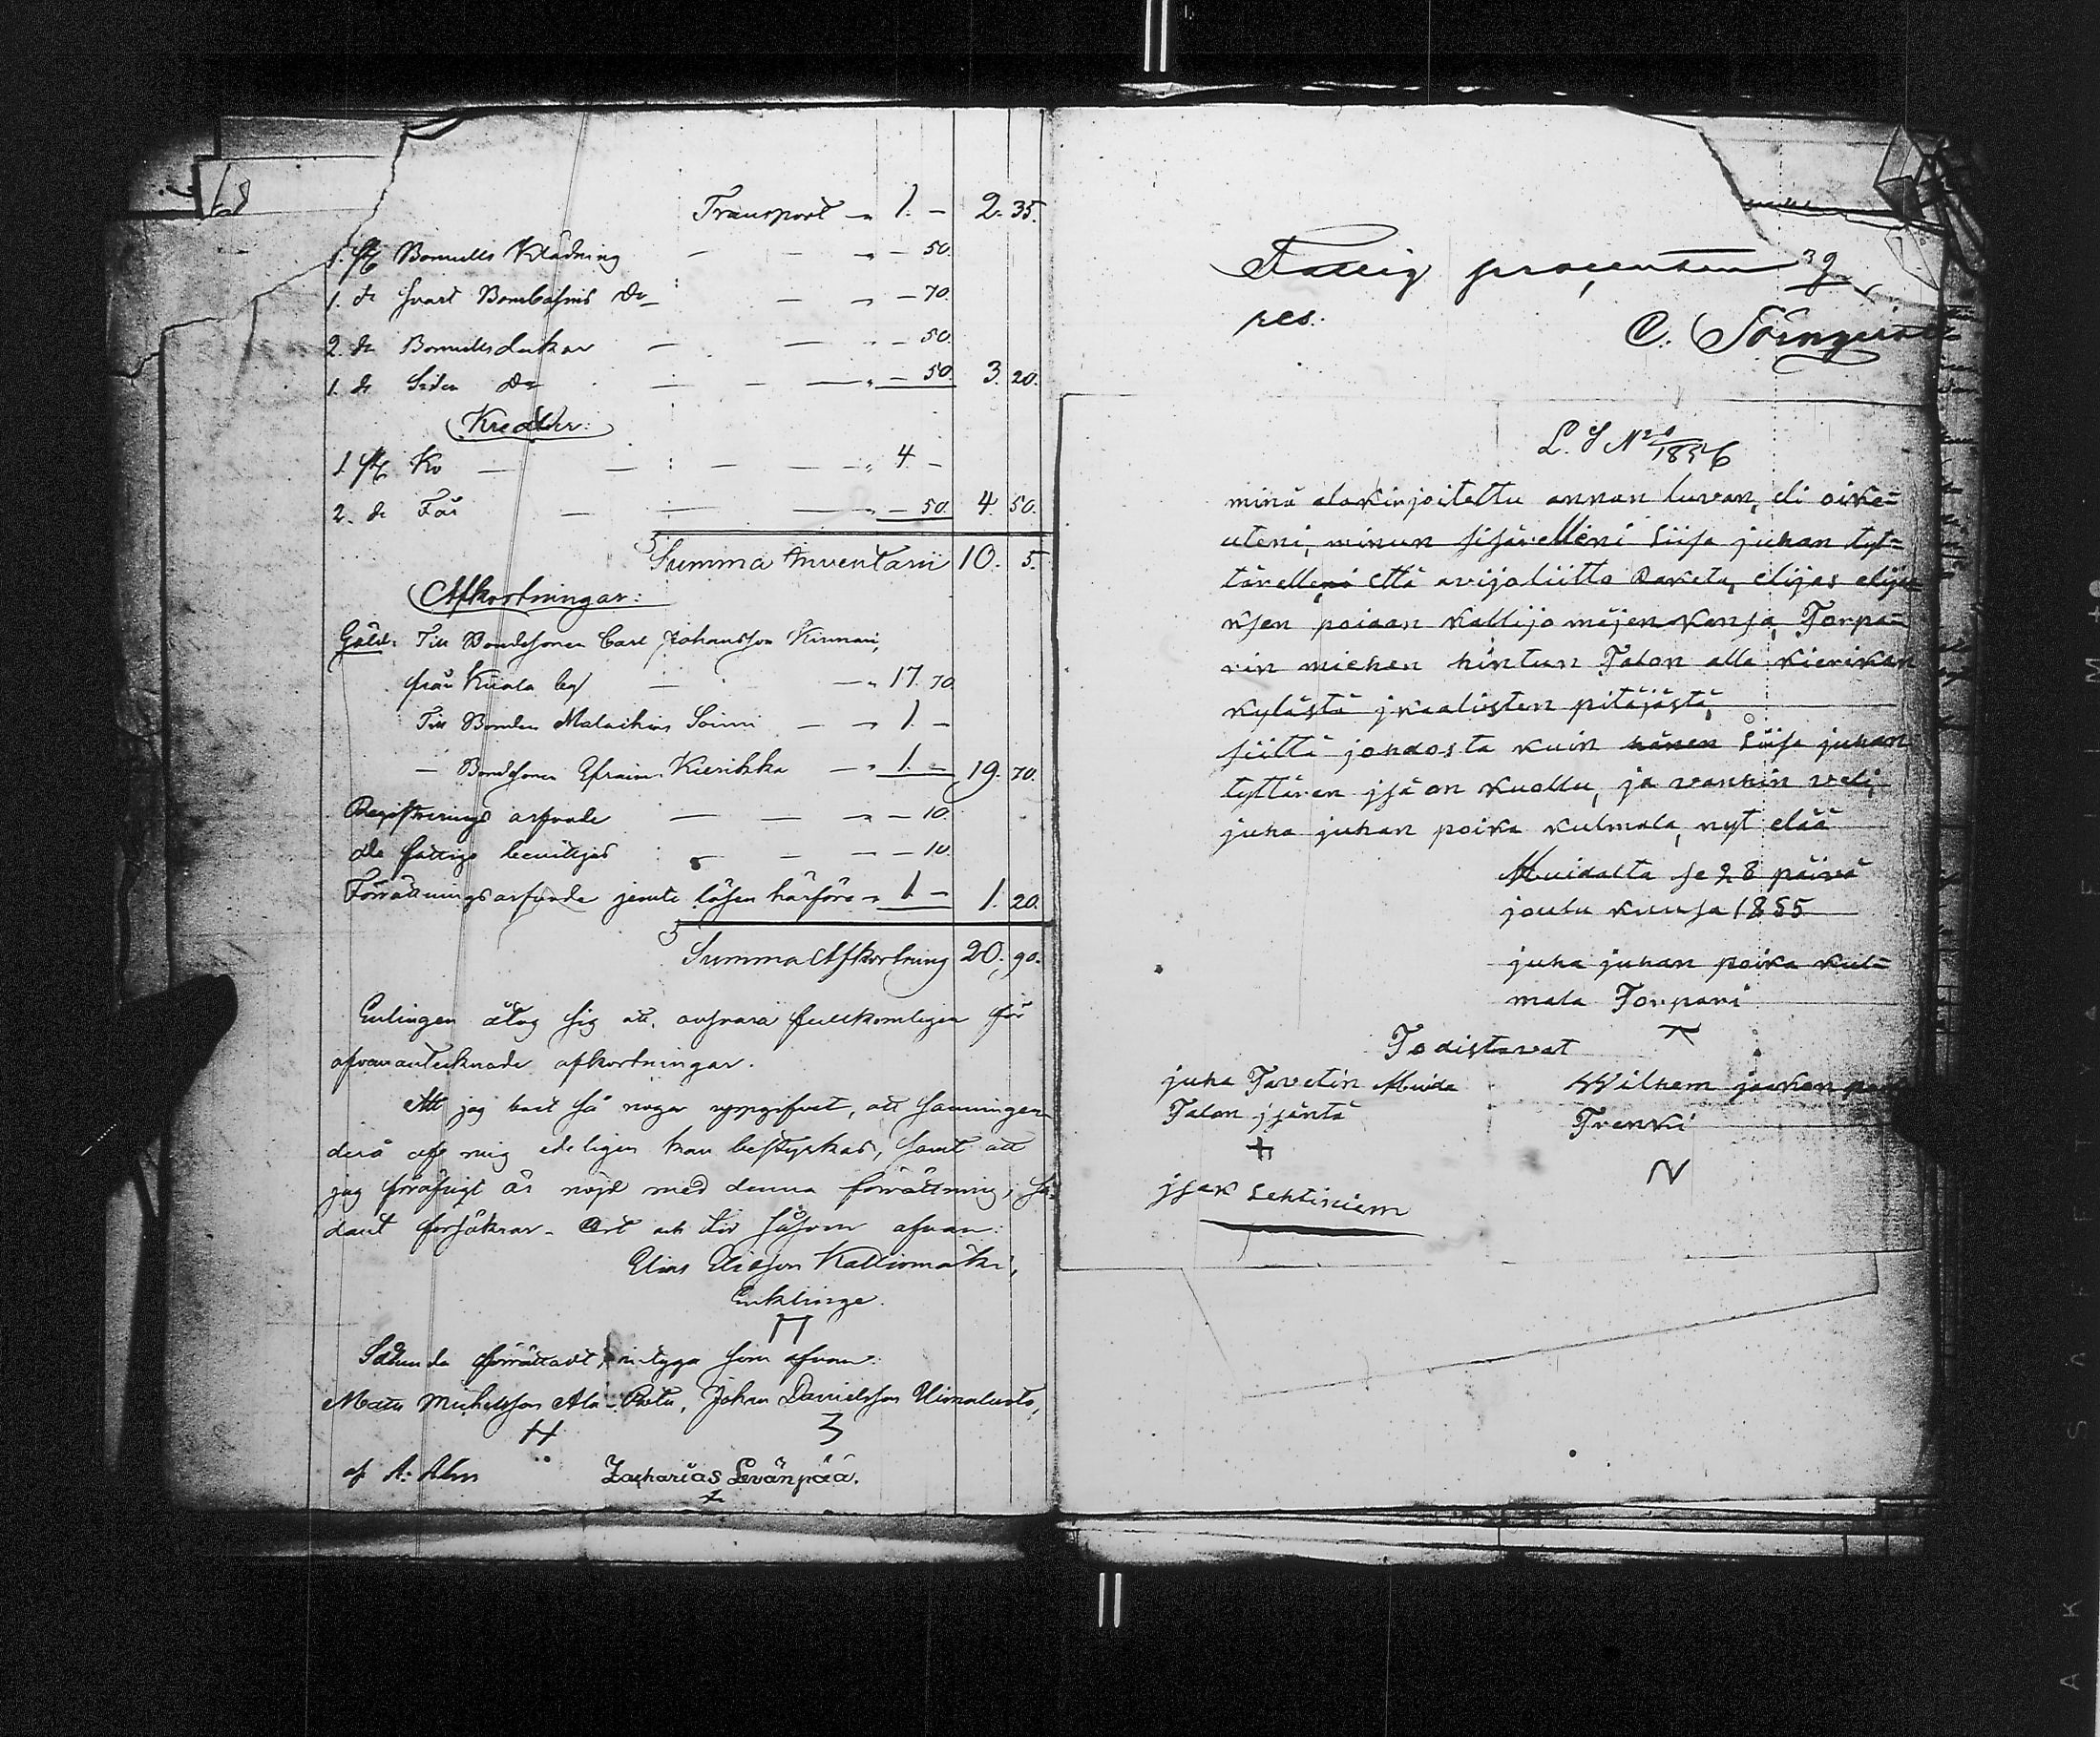 Transport — 1. — 2. 35.
1. st Bomulls Klädning — — — 50.
1. do svart Bombasins do — — — 70.
2. do Bomullsdukar — — — 50.
1. do Siden do — — — 50. 3. 20.
Kreatur:
1 st Ko — — — 4. —
2. do Får — — — 50. 4. 50.
Summa Inventarii 10. 5.
Afkortningar:
Gäld: Till Bondesonen Carl Johansson Kinnari,
från — 17. 70.
Till Bonden Malachias Soini — 1. —
— Bondesonen Efraim Kierikka — 1. — 19. 70.
Registrerings arfvode — — — 10.
de fattige beviljas — — — 10.
Förrättningsarfvode jemte lösen härföre 1 — 1. 20.
Summa Afkortning 20. 90.
Enklingen åtog sig att ansvara fullkomligen för
ofvanantecknade afkortningar.
Att jag boet så noga uppgifvit, att sanningen
deraf af mig edeligen kan bestyrkas, samt att
jag för öfrigt är nöjd med denna förrättning, så-
dant försäkrar. Ort och tid såsom ofvan:
Elias Eliasson Kalliomäki,
Enklinge.
Sålunda förrättadt, intyga som ofvan:
Matts Michelsson Ala-, Johan Danielsson
H 3
af A: Alm Zacharias Levänpää.
Fattig procenten 39
res.
C.
L. S No 1856
minä alakirjoitettu annan luvan, eli oike=
uteni, minun sisärelleni Liisa juhan tyt=
tärelleni että avijoliitto Raketa, elijas elija
ksen poiaan kallijo mäjen kansa, Torpa=
rin miehen hintun Talon alla kierikan
kylästä jkaalisten pitäjästä,
siittä johdosta kuin hänen Liisa juhan
tyttären jsä on kuollu, ja vanhin veli,
juha juhan poika kulmala, nyt elää
Muidalta se 28 päivä
joulu kuusa 1855
juha juhan poika kul=
mala Torpari
Todistavat
juha Tavetin Muida
Talon jsäntä
Wilhem jaakon
Trenki
jsak Lehtiniem